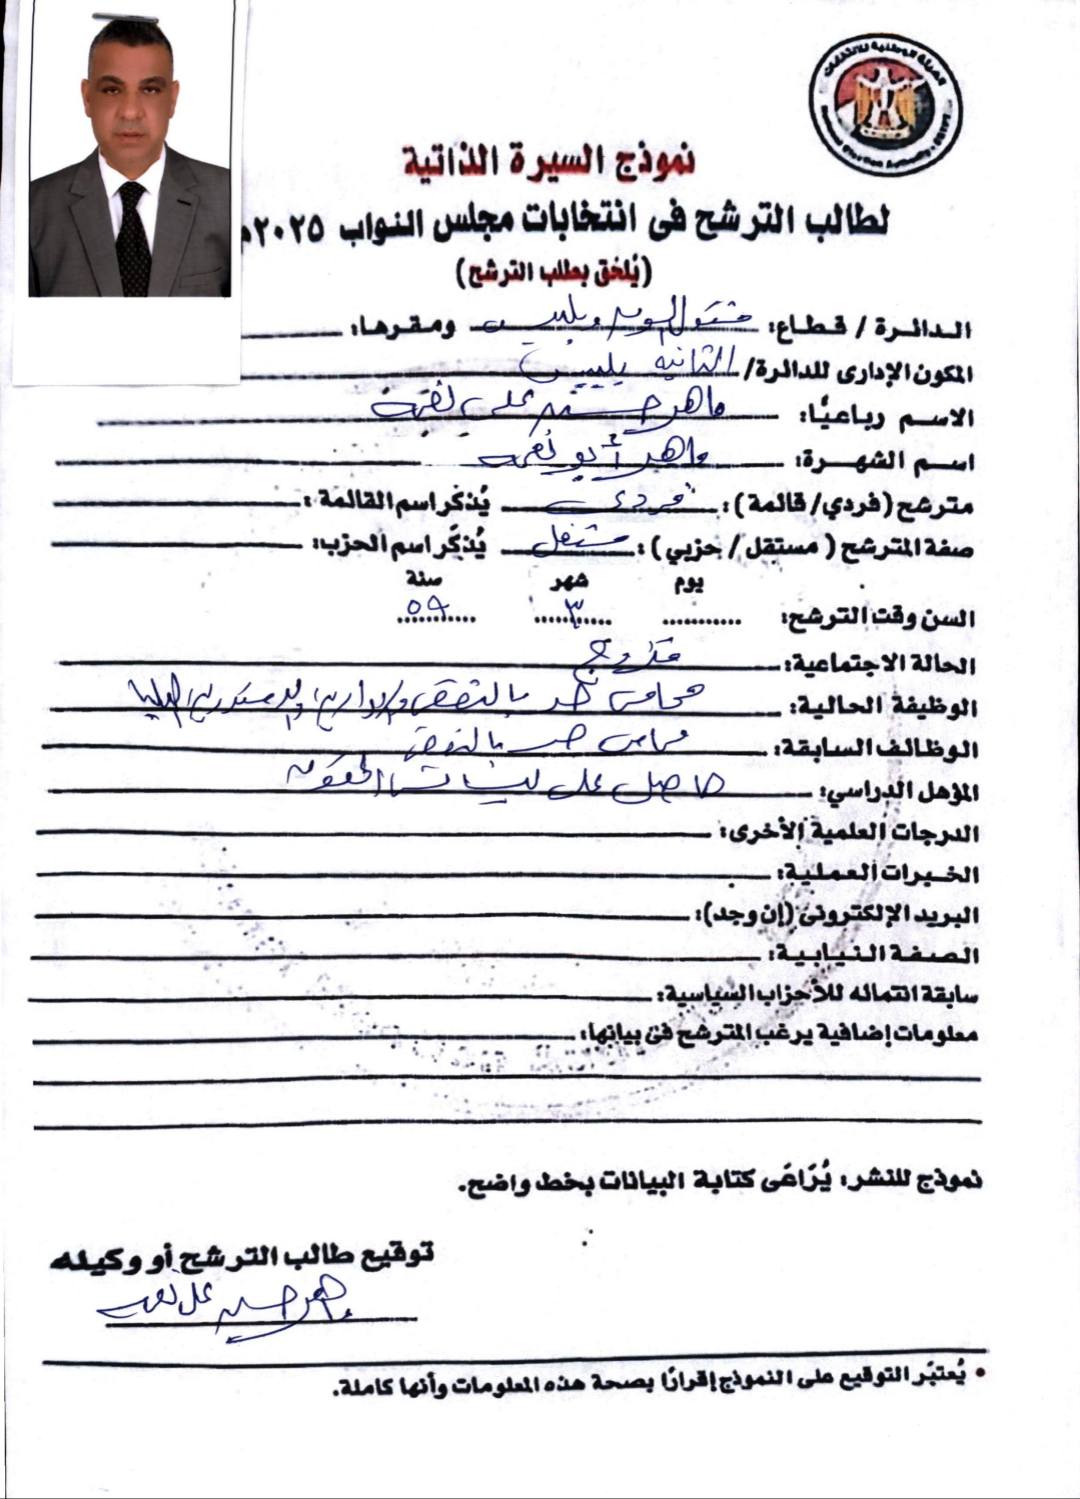 الهيئة الوطنية للانتخابات
National Election Authority - EGYPT
نموذج السيرة الذاتية
لطالب الترشح فى انتخابات مجلس النواب ٢٠٢٥م
(يُلحق بطلب الترشح)
الدائرة / قطاع: مشتول السوق وبلبيس ومقرها:
المكون الإدارى للدائرة/ الثانيه بلبيس
الاسم رباعيًا: ماهر حسيني علي نعمة
اسم الشهرة: ماهر أبو نعمه
مترشح (فردي/ قائمة): فردى يُذكر اسم القائمة:
صفة المترشح ( مستقل / حزبي ): مستقل يُذكر اسم الحزب:
يوم شهر سنة
السن وقت الترشح: ٣ ٥٩
الحالة الاجتماعية: متزوج
الوظيفة الحالية: محامى حر بالنقض والإدارية والدستورية العليا
الوظائف السابقة: محامى حر بالنقض
المؤهل الدراسي: حاصل على ليسانس الحقوق
الدرجات العلمية الأخرى:
الخبرات العملية:
البريد الإلكترونى (إن وجد):
الصفة النيابية:
سابقة انتمائه للأحزاب السياسية:
معلومات إضافية يرغب المترشح فى بيانها:
نموذج للنشر: يُرَاعَى كتابة البيانات بخط واضح.
توقيع طالب الترشح أو وكيله
ماهر علي
• يُعتبَر التوقيع على النموذج إقرارًا بصحة هذه المعلومات وأنها كاملة.